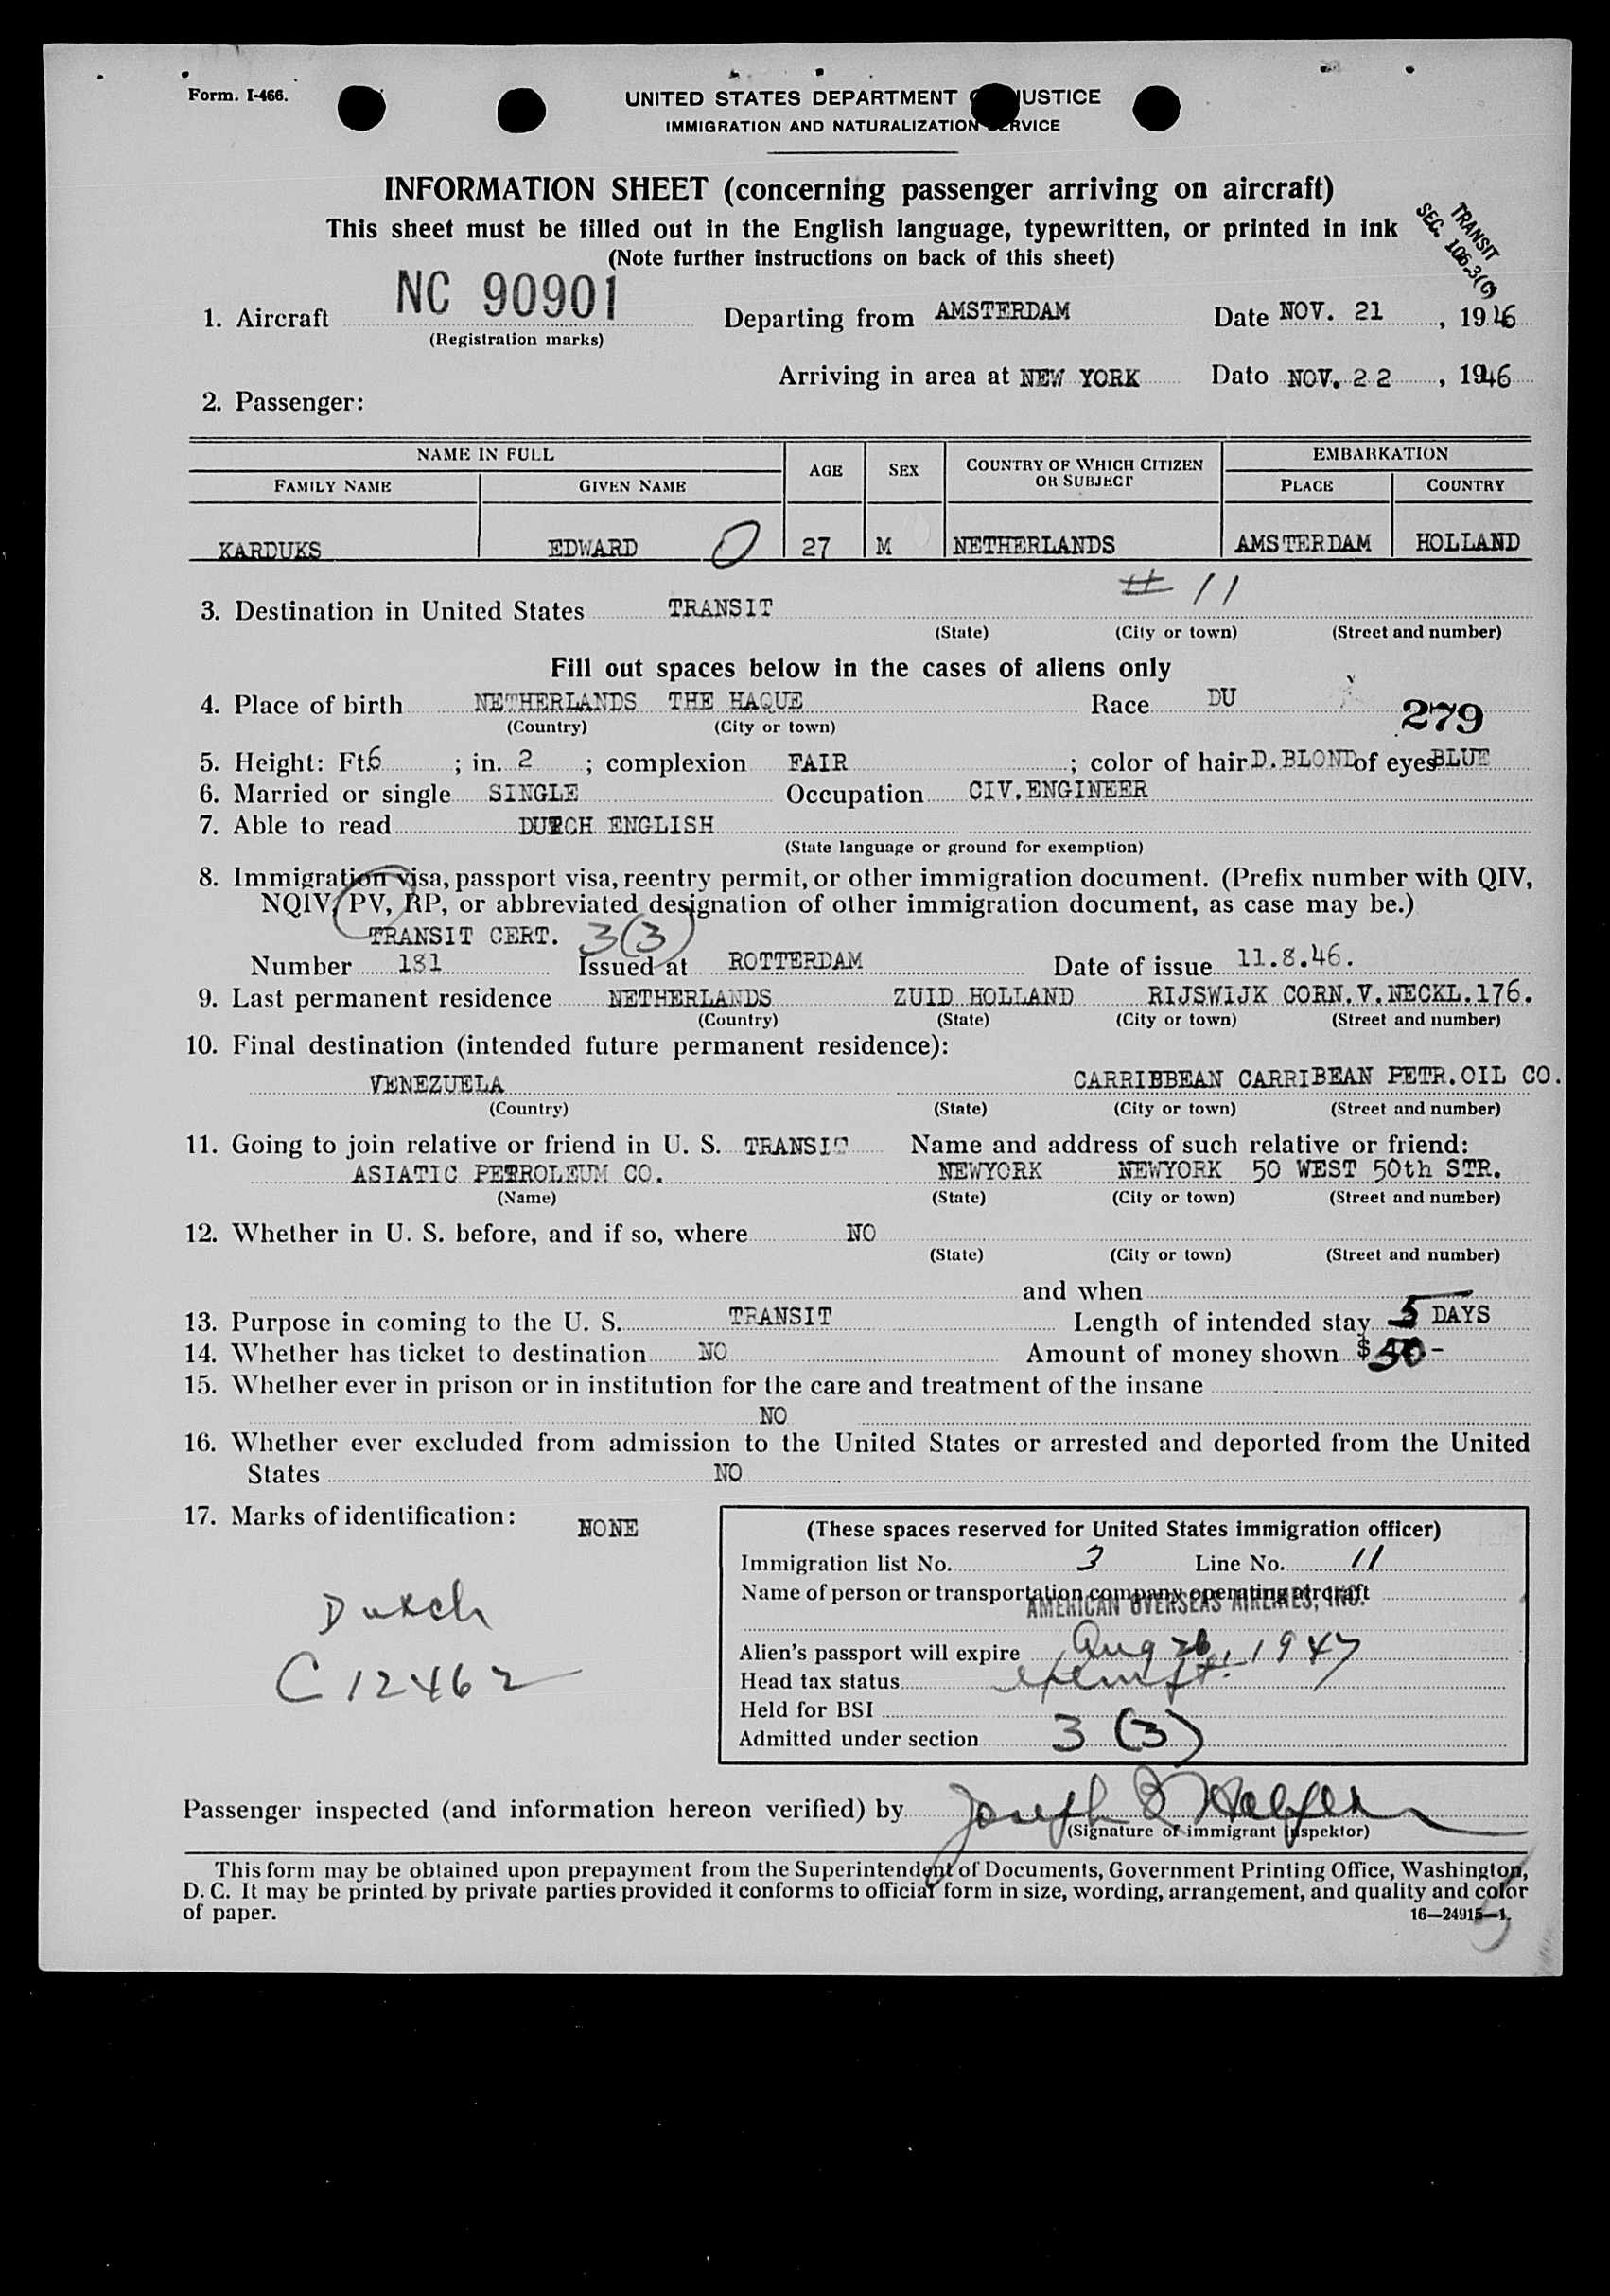 Form. I-466.
UNITED STATES DEPARTMENT JUSTICE
IMMIGRATION AND NATURALIZATION SERVICE
INFORMATION SHEET (concerning passenger arriving on aircraft)
This sheet must be filled out in the English language, typewritten, or printed in ink
TRANSIT
SEC. 106.3(C)
(Note further instructions on back of this sheet)
1. Aircraft NC 90901 Departing from AMSTERDAM Date NOV. 21, 1946
(Registration marks)
Arriving in area at NEW YORK Dato NOV. 22, 1946
2. Passenger:
NAME IN FULL AGE SEX COUNTRY OF WHICH CITIZEN OR SUBJECT EMBARKATION
FAMILY NAME GIVEN NAME PLACE COUNTRY
KARDUKS EDWARD 0 27 M NETHERLANDS AMSTERDAM HOLLAND
# 11
3. Destination in United States TRANSIT
(State) (City or town) (Street and number)
Fill out spaces below in the cases of aliens only
4. Place of birth NETHERLANDS THE HAQUE Race DU 279
(Country) (City or town)
5. Height: Ft. 6 ; in. 2 ; complexion FAIR ; color of hair D.BLOND of eyes BLUE
6. Married or single SINGLE Occupation CIV.ENGINEER
7. Able to read DUTCH ENGLISH
(State language or ground for exemption)
8. Immigration visa, passport visa, reentry permit, or other immigration document. (Prefix number with QIV,
NQIV, PV, RP, or abbreviated designation of other immigration document, as case may be.)
TRANSIT CERT. 3(3)
Number 181 Issued at ROTTERDAM Date of issue 11.8.46.
9. Last permanent residence NETHERLANDS ZUID HOLLAND RIJSWIJK CORN.V.NECKL.176.
(Country) (State) (City or town) (Street and number)
10. Final destination (intended future permanent residence):
VENEZUELA CARRIBBEAN CARRIBEAN PETR.OIL CO.
(Country) (State) (City or town) (Street and number)
11. Going to join relative or friend in U. S. TRANSIT Name and address of such relative or friend:
ASIATIC PETROLEUM CO. NEWYORK NEWYORK 50 WEST 50th STR.
(Name) (State) (City or town) (Street and number)
12. Whether in U. S. before, and if so, where NO
(State) (City or town) (Street and number)
and when
13. Purpose in coming to the U. S. TRANSIT Length of intended stay 5 DAYS
14. Whether has ticket to destination NO Amount of money shown $ 50.-
15. Whether ever in prison or in institution for the care and treatment of the insane
NO
16. Whether ever excluded from admission to the United States or arrested and deported from the United
States NO
17. Marks of identification: NONE
Dutch
C 12462
(These spaces reserved for United States immigration officer)
Immigration list No. 3 Line No. 11
Name of person or transportation company operating aircraft
AMERICAN OVERSEAS AIRLINES, INC.
Alien's passport will expire Aug 26, 1947
Head tax status exempt.
Held for BSI
Admitted under section 3 (3)
Passenger inspected (and information hereon verified) by Joseph
(Signature of immigrant inspektor)
This form may be obtained upon prepayment from the Superintendent of Documents, Government Printing Office, Washington,
D. C. It may be printed by private parties provided it conforms to official form in size, wording, arrangement, and quality and color
of paper.
16—24915—1.